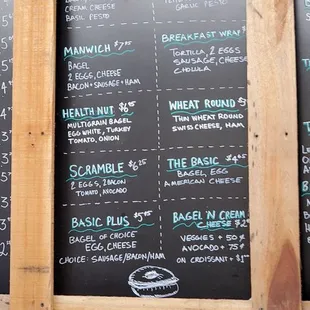 CREAM CHEESE
BASIL PESTO
MANWICH $7.95
BAGEL
2 EGGS, CHEESE
BACON + SAUSAGE + HAM
HEALTH NUT $6.95
MULTIGRAIN BAGEL
EGG WHITE, TURKEY
TOMATO, ONION
SCRAMBLE $6.25
2 EGGS, 2 BACON
TOMATO, AVOCADO
BASIC PLUS $5.95
BAGEL OF CHOICE
EGG, CHEESE
CHOICE: SAUSAGE/BACON/HAM
GARLIC PESTO
BREAKFAST WRAP
TORTILLA, 2 EGGS
SAUSAGE, CHEESE
CHOLULA
WHEAT ROUND
THIN WHEAT ROUND
SWISS CHEESE, HAM
THE BASIC $4.95
BAGEL, EGG
AMERICAN CHEESE
BAGEL 'N CREAM
CHEESE
VEGGIES + 50¢
AVOCADO + 75¢
ON CROISSANT +